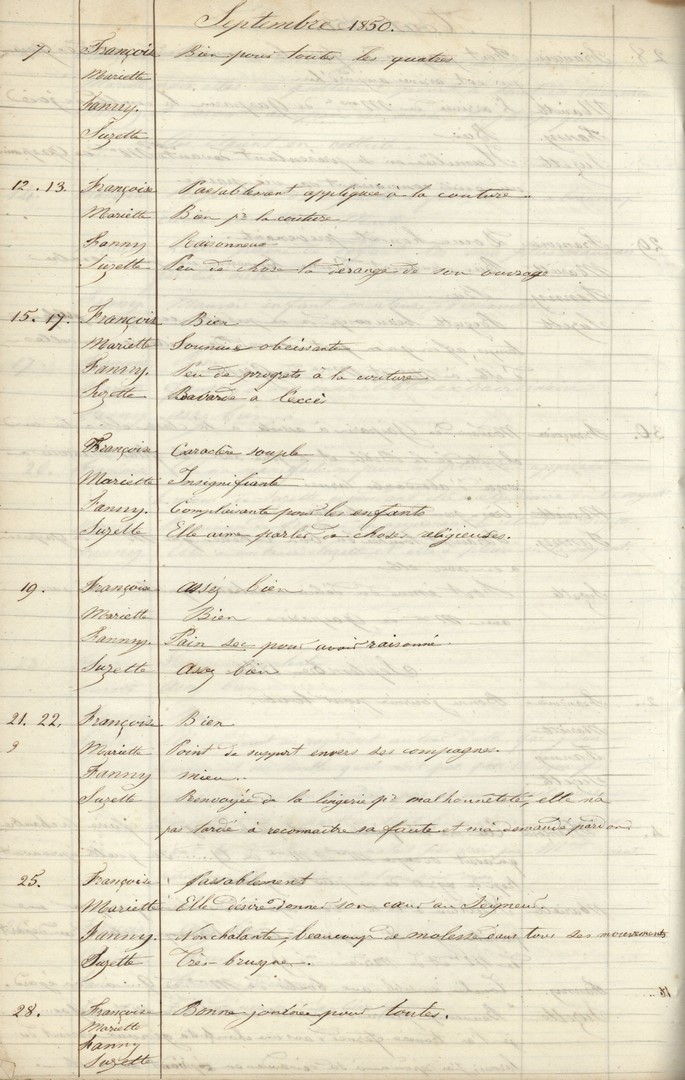 Septembre 1850.
7. Françoise Bien pour toutes les quatres
Mariette
Fanny.
Suzette
12. 13. Françoise Passablement appliquée à la couture.
Mariette Bien pr la couture
Fanny Raisonneuse
Suzette Peu de chose la dérange de son ouvrage
15. 17. Françoise Bien
Mariette Soumise obeissante
Fanny. Peu de progrets à la couture
Suzette Bavarde a l'excès
Françoise Caractère souple
Mariette Insignifiante
Fanny. Complaisante pour les enfants
Suzette Elle aime parler de choses religieuses.
19. Françoise assez bien
Mariette Bien
Fanny. Pain sec pour avoir raisonné
Suzette assez bien
21. 22. Françoise Bien
Mariette Point de support envers ses compagnes.
Fanny mieux.
Suzette Renvoyée de la lingerie pr malhonnêteté, elle n'a
pas tardé à reconnaitre sa faute et m'a demandé pardon
25. Françoise passablement
Mariette Elle désire donner son cœur au Seigneur.
Fanny. Nonchalante, beaucoup de molesse dans tous ses mouvements
Suzette Très brusque.
28. Françoise Bonne jontnée pour toutes.
Mariette
Fanny
Suzette